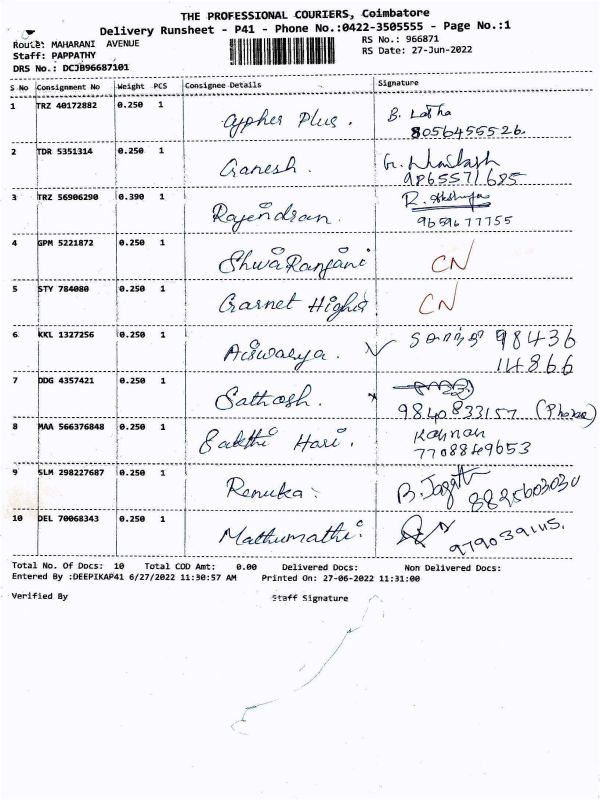 THE PROFESSIONAL COURIERS, Coimbatore
Delivery Runsheet - P41 - Phone No.:0422-3505555 - Page No.:1
Route: MAHARANI AVENUE
RS No.: 966871
Staff: PAPPATHY
RS Date: 27-Jun-2022
DRS No.: DCJB96687101
S No Consignment No Weight PCS Consignee Details Signature
1 TRZ 40172882 0.250 1 Cypher Plus. B. Latha
8056455526.
2 TDR 5351314 0.250 1 Ganesh.
9865571685
3 TRZ 56906290 0.390 1 Rajendran. R.
9659677755
4 GPM 5221872 0.250 1 Shwa Ranjani CN
5 STY 784080 0.250 1 Garnet Highs. CN
6 KKL 1327256 0.250 1 Aiswarya. 98436
14866
7 DDG 4357421 0.250 1 Sathosh.
9840833157 (Phone)
8 MAA 566376848 0.250 1 Sakthi Hari. Kannan
7708849653
9 SLM 298227687 0.250 1 Renuka. B. Jagath
8825603030
10 DEL 70068343 0.250 1 Mathumathi.
Total No. Of Docs: 10 Total COD Amt: 0.00 Delivered Docs: Non Delivered Docs:
Entered By :DEEPIKAP41 6/27/2022 11:30:57 AM Printed On: 27-06-2022 11:31:00
Verified By Staff Signature